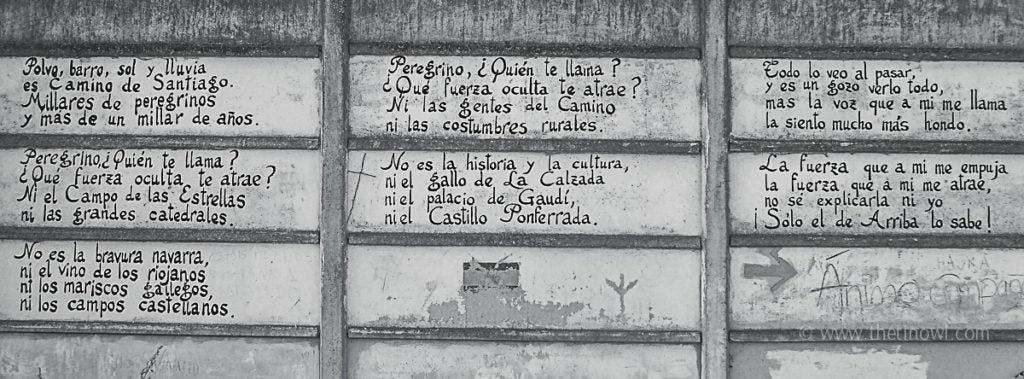 Polvo, barro, sol y lluvia
es Camino de Santiago.
Millares de peregrinos
y más de un millar de años.
Peregrino,¿Quién te llama?
¿Qué fuerza oculta te atrae?
Ni el Campo de las Estrellas
ni las grandes catedrales.
No es la bravura navarra,
ni el vino de los riojanos
ni los mariscos gallegos,
ni los campos castellanos.
Peregrino, ¿Quién te llama?
¿Qué fuerza oculta te atrae?
Ni las gentes del Camino
ni las costumbres rurales.
No es la historia y la cultura,
ni el gallo de La Calzada
ni el palacio de Gaudí,
ni el Castillo Ponferrada.
Todo lo veo al pasar,
y es un gozo verlo todo,
mas la voz que a mi me llama
la siento mucho más hondo.
La fuerza que a mi me empuja
la fuerza que a mi me atrae,
no se explicarla ni yo
¡Solo el de Arriba lo sabe!
Ánimo
© www.thetinowl.com